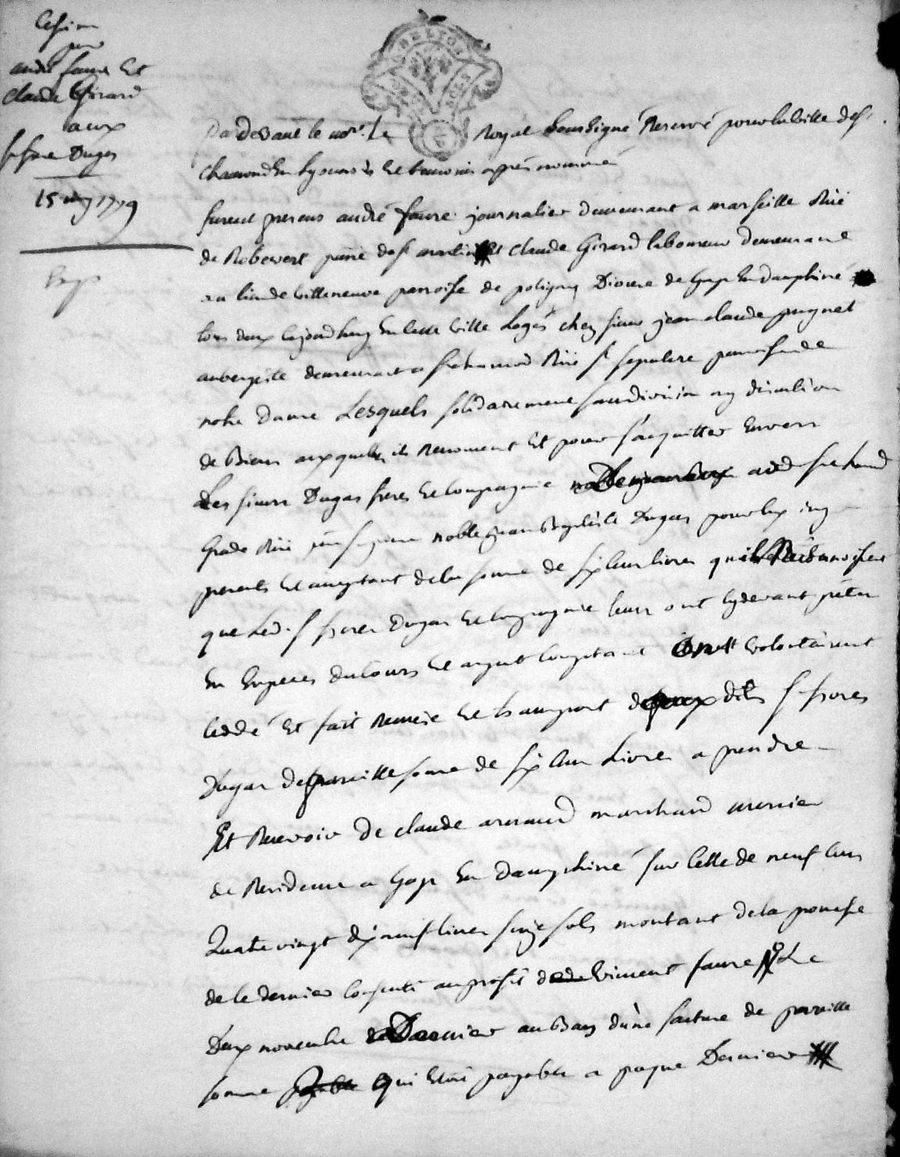 Cession
par
andré faure Et
Claude Girard
aux
frere Dugas
15 1779
Par devant le no.re Royal soussigné Reservé pour la ville de S.t
chamond En lyonnois Et temoins après nommé
furent presens andré faure journalier demeurant a marseille Rüe
de paroisse de S.t martin Et claude Girard laboureur demeurant
au lieu de villeneuve parroisse de poligny Diocese de Gap En dauphiné
tous deux En cette ville Logés chez sieur jean claude pugnet
aubergiste demeurant a S.t chamond Rüe S.t sepulcre paroisse de
notre dame Lesquels solidairement sans division ny discution
de Biens auxquels ils Renoncent Et pour s'acquitter Envers
Les sieurs Dugas freres Et Compagnie S.t chamond
Grade Rüe noble jean Baptiste Dugas pour Eux icy
present Et acceptant de la somme de six cens livres
que Led. s.r freres Dugas Et Compagnie leurs ont cy devant prétée
En Especes du Cours Et argent Comptant ont volontairement
Ceddé Et fait Remise Et transport dits s.r freres
Dugas de pareille somme de six cens Livres a prendre
Et Recevoir de claude arnaud marchand
de Residence a Gap En dauphiné sur Celle de neuf cens
Quatre vingt dix neuf livres seize sols montant de la promesse
de Ce dernier Consenti au profit de vincent faure Le
Deux novembre Dernier au Bas d'une facture de pareille
somme qui Etoit payable a paque Dernier